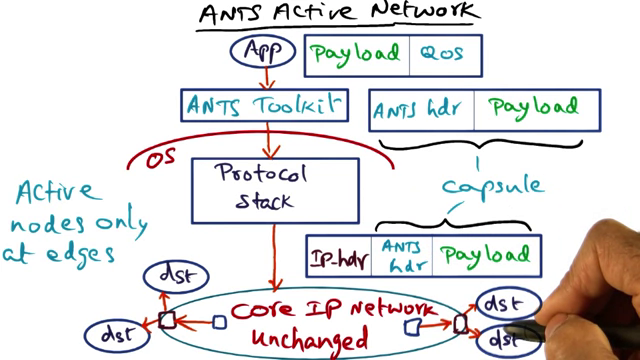 ANTS Active Network
App
Payload QOS
ANTS Toolkit
ANTS hdr Payload
OS
Protocol
Stack
capsule
Active
nodes only
at edges
IP-hdr ANTS hdr Payload
dst
dst
Core IP Network
Unchanged
dst
dst